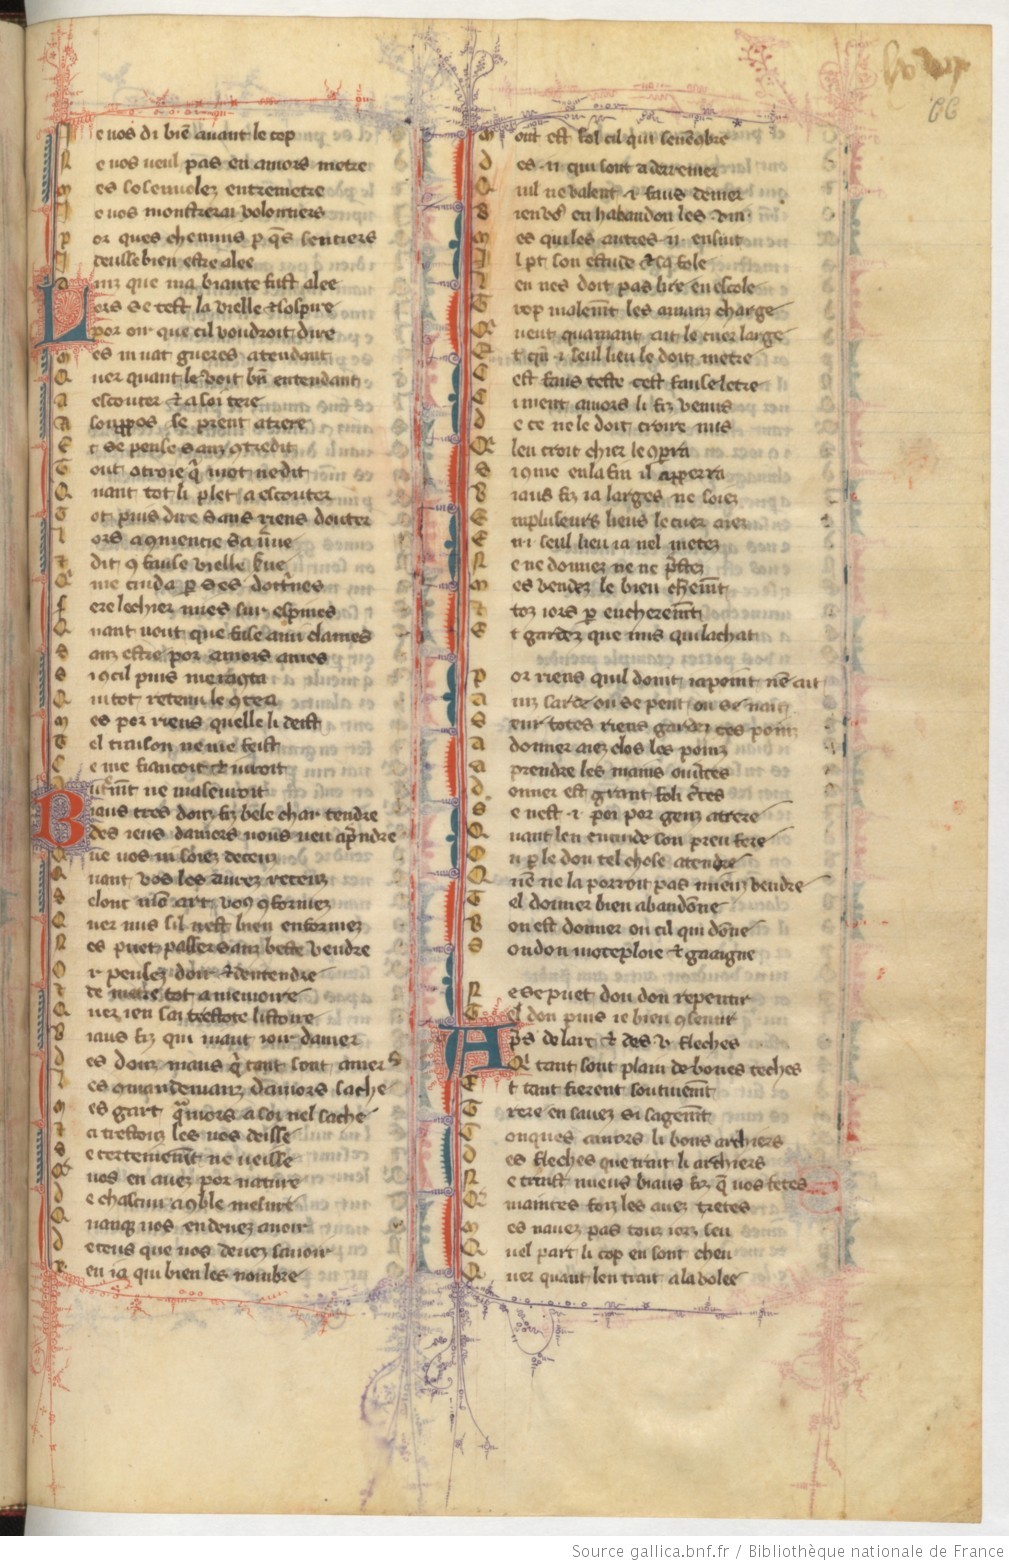 Je vos di bien avant le cop
Ne vos veul pas en amors metre
Mes so s'en volez entremetre
Je vos monstrerai volontiers
Por ques chemins p q̄s sentiers
Je deusse bien estre alee
Ainz que ma biaute fust alee
Lors se test la vielle et sospire
por oir que cil voudroit dire
Mes ni vat gueres atendant
Quer quant le voit bn̄ entendant
A escouter et a soi tere
A son ppos se prent a trere
Et se pense sanz 9tredit
Tout otroie q̄ mot ne dit
Quant tot li plet a escouter
Tot puis dire sans riens douter
Lors a 9mencie sa
Et dit 9 fause vielle
Que me cuida p ses dottines
Fere lechier mies sur espines
Quant vout que fusse amis clames
Sanz estre por amors ames
Si 9 cil puis me
Qui tot retenu le
Mes por riens quelle li deist
Tel traison ne me feist
Ce me fiancoit et
ne mesevroit
Biaus tres douz filz bele char tendre
des ieus damers vous veu apndre
Que vos ni soiez deceuz
Quant vos les aurez receuz
Selonc art vos 9formez
Quer nus sil nest bien enformez
Nes puet passer sanz beste vendre
Or pensez doir et dentendre
Et de metre tot a memoire
Quer ien sai trestote listoire
Biaus filz qui viaut ioir damer
Des douz maus q̄ tant sont amers
Les 9mandemanz damors sache
Mes gart quamors a soi nel sache
Ia trestouz les vos deisse
Se certenement ne veisse
Que vos en avez por nature
De chascun a 9ble mesure
Quanque vos en devez avoir
De ceus que vos devez savoir
en ia qui bien les nombre
Mout est fol cil qui senenobre
Des .ii. qui sont a derrenier
Quil ne valent .i. faus denier
Bien vos en habandon les
Mes qui les autres .ii. ensuit
Il pt son estude et sa fole
Len nes doit pas lire en escole
Trop malement les amanz charge
Qui veut quamant ait le cuer large
Et quen .i. seul lieu le doit metre
Cest faus teste cest fause letre
Ci ment amors li filz venus
De ce ne le doit croire nus
Qui len croit chier le 9pra
Si 9me en la fin il apperra
Biaus filz ia larges ne soiez
En plusieurs lieus le cuer aiez
En .i. seul lieu ia nel metez
Ne ne donnez ne ne pstez
Mes vendez le bien
Et toz iors p encherement
Et gardez que nus qui lachat
Por riens quil doint ia point nen ait
sarde ou se pent ou se naie
Seur totes riens gardez ces poinz
A donner aiez clos les poinz
A prendre les mains ouvtes
Donner est grant foli ctes
Se nest .i. poi por genz atrere
Quant len encuide son preu fere
On p le don tel chose atendre
Quen ne la porroit pas miex vendre
Tel donner bien abandone
Bon est donner ou cil qui done
Son don moteploie et gaaigne
Ne se puet dou don repentir
Tel don puis ie bien 9sentir
Aps de larc et des .v. fleches
Qui tant sont plain de bones teches
Et tant fierent soutivement
Trere en savez si sagement
Conques amors li bons archiers
Des fleches que trait li archiers
Ne traist nueus biaus filz q̄ vos fetes
Maintes foiz les avez tretes
Mes navez pas touz iorz seu
Quel part li cop en sont cheu
Quer quant len trait a la volee
66
Source gallica.bnf.fr / Bibliothèque nationale de France